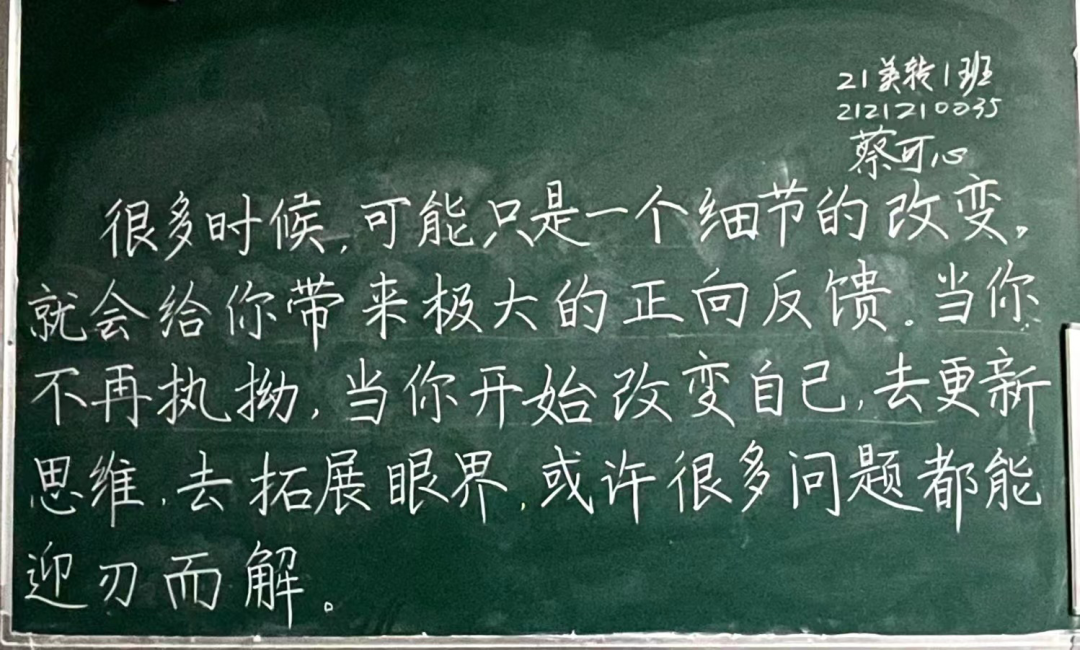 21美转1班
2121210035
蔡可心
很多时候,可能只是一个细节的改变,
就会给你带来极大的正向反馈。当你
不再执拗,当你开始改变自己,去更新
思维,去拓展眼界,或许很多问题都能
迎刃而解。